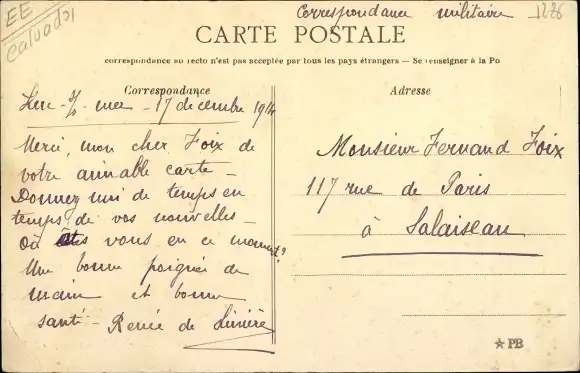 EE
Calvados
Correspondance militaire
1226
CARTE POSTALE
correspondance au recto n'est pas acceptée par tous les pays étrangers — Se renseigner à la Po
Correspondance
Adresse
s/ mer - 17 decembre 1914
Merci, mon cher Foix de
votre aimable carte -
Donnez moi de temps en
temps de vos nouvelles -
Où êtes vous en ce moment?
Une bonne poignée de
main et bonne
santé - Renée de
Monsieur Fernand Foix
117 rue de Paris
à Palaiseau
PB